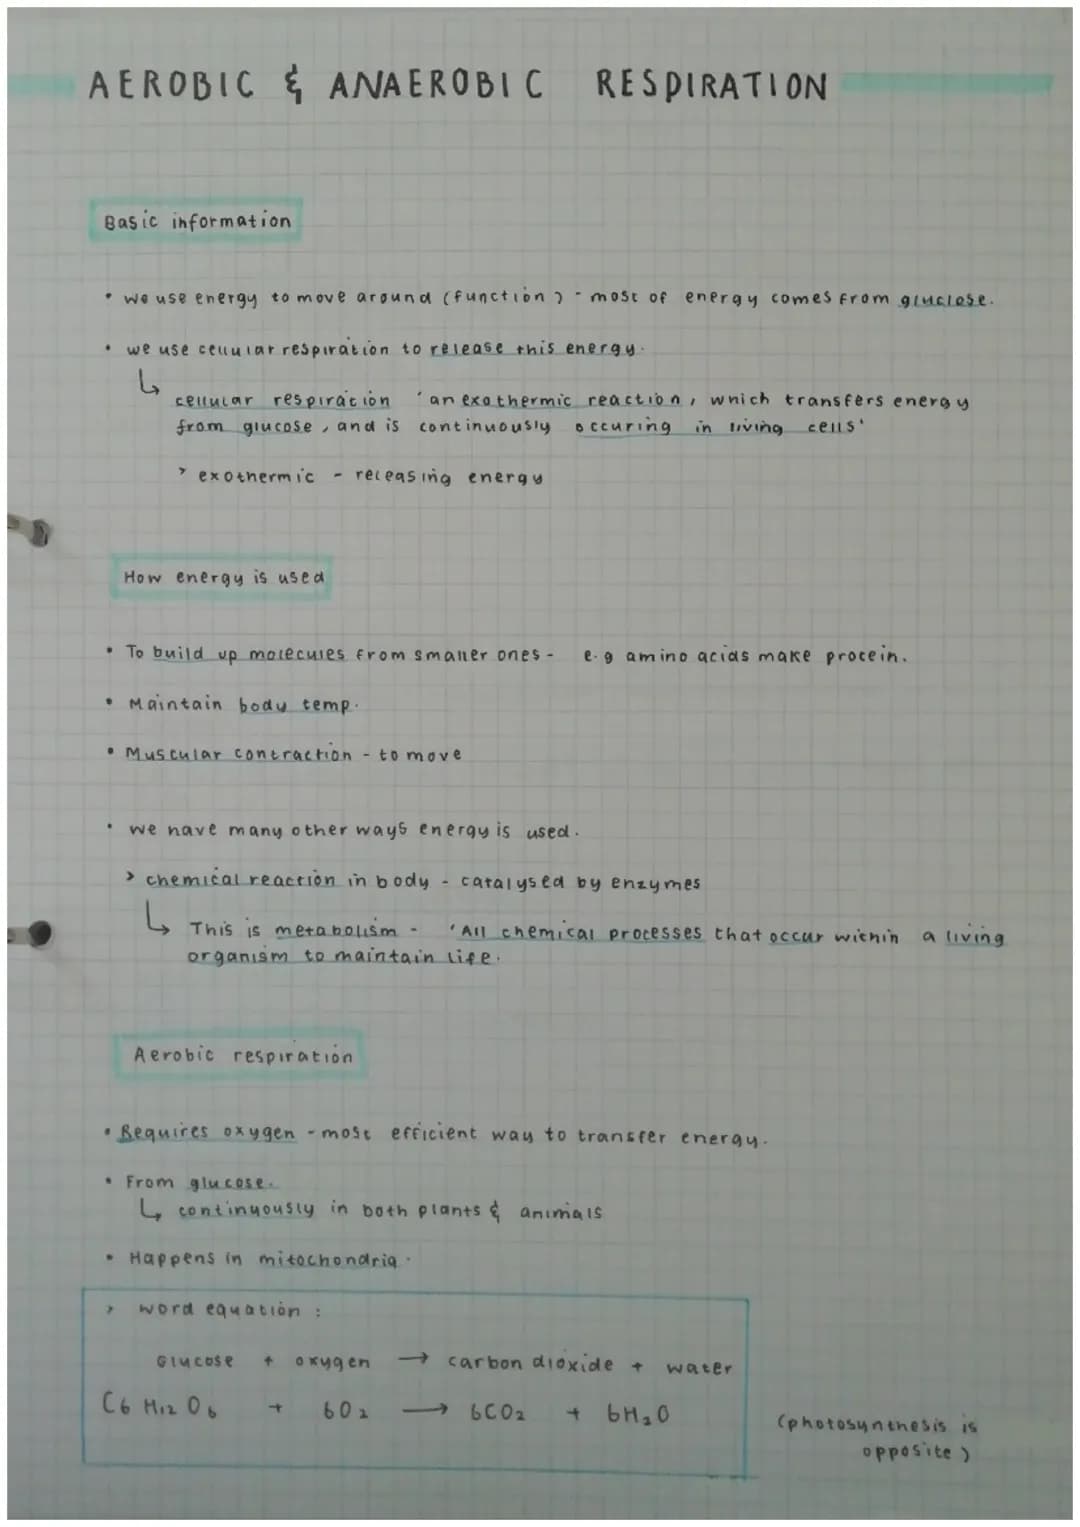 AEROBIC & ANAEROBIC RESPIRATION
Basic information
• we use energy to move around (function) - most of energy comes from gluclose.
• we use cellular respiration to release this energy.
↳ cellular respiration 'an exothermic reaction, which transfers energy
from glucose, and is continuously occuring in living cells'
> exothermic - releasing energy
How energy is used
• To build up molecules from smaller ones - e.g amino acids make protein.
• Maintain body temp.
• Muscular contraction - to move
• we have many other ways energy is used.
> chemical reaction in body - catalysed by enzymes
↳ This is metabolism - 'All chemical processes that occur within a living
organism to maintain life.
Aerobic respiration
• Requires oxygen - most efficient way to transfer energy.
• From glucose.
↳ continuously in both plants & animals
• Happens in mitochondria.
> word equation :
Glucose + oxygen → carbon dioxide + water
C6 H12 O6 + 6O2 → 6CO2 + 6H2O
(photosynthesis is
opposite)